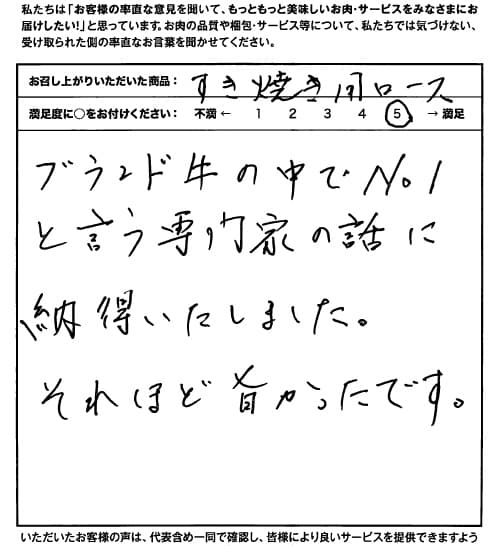 私たちは「お客様の率直な意見を聞いて、もっともっと美味しいお肉・サービスをみなさまにお
届けしたい!」と思っています。お肉の品質や梱包・サービス等について、私たちでは気づけない、
受け取られた側の率直なお言葉を聞かせてください。
お召し上がりいただいた商品： すき焼き用ロース
満足度に○をお付けください： 不満 ← 1 2 3 4 5 → 満足
ブランド牛の中でNo.1
と言う専門家の話に
納得いたしました。
それほど旨かったです。
いただいたお客様の声は、代表含め一同で確認し、皆様により良いサービスを提供できますよう